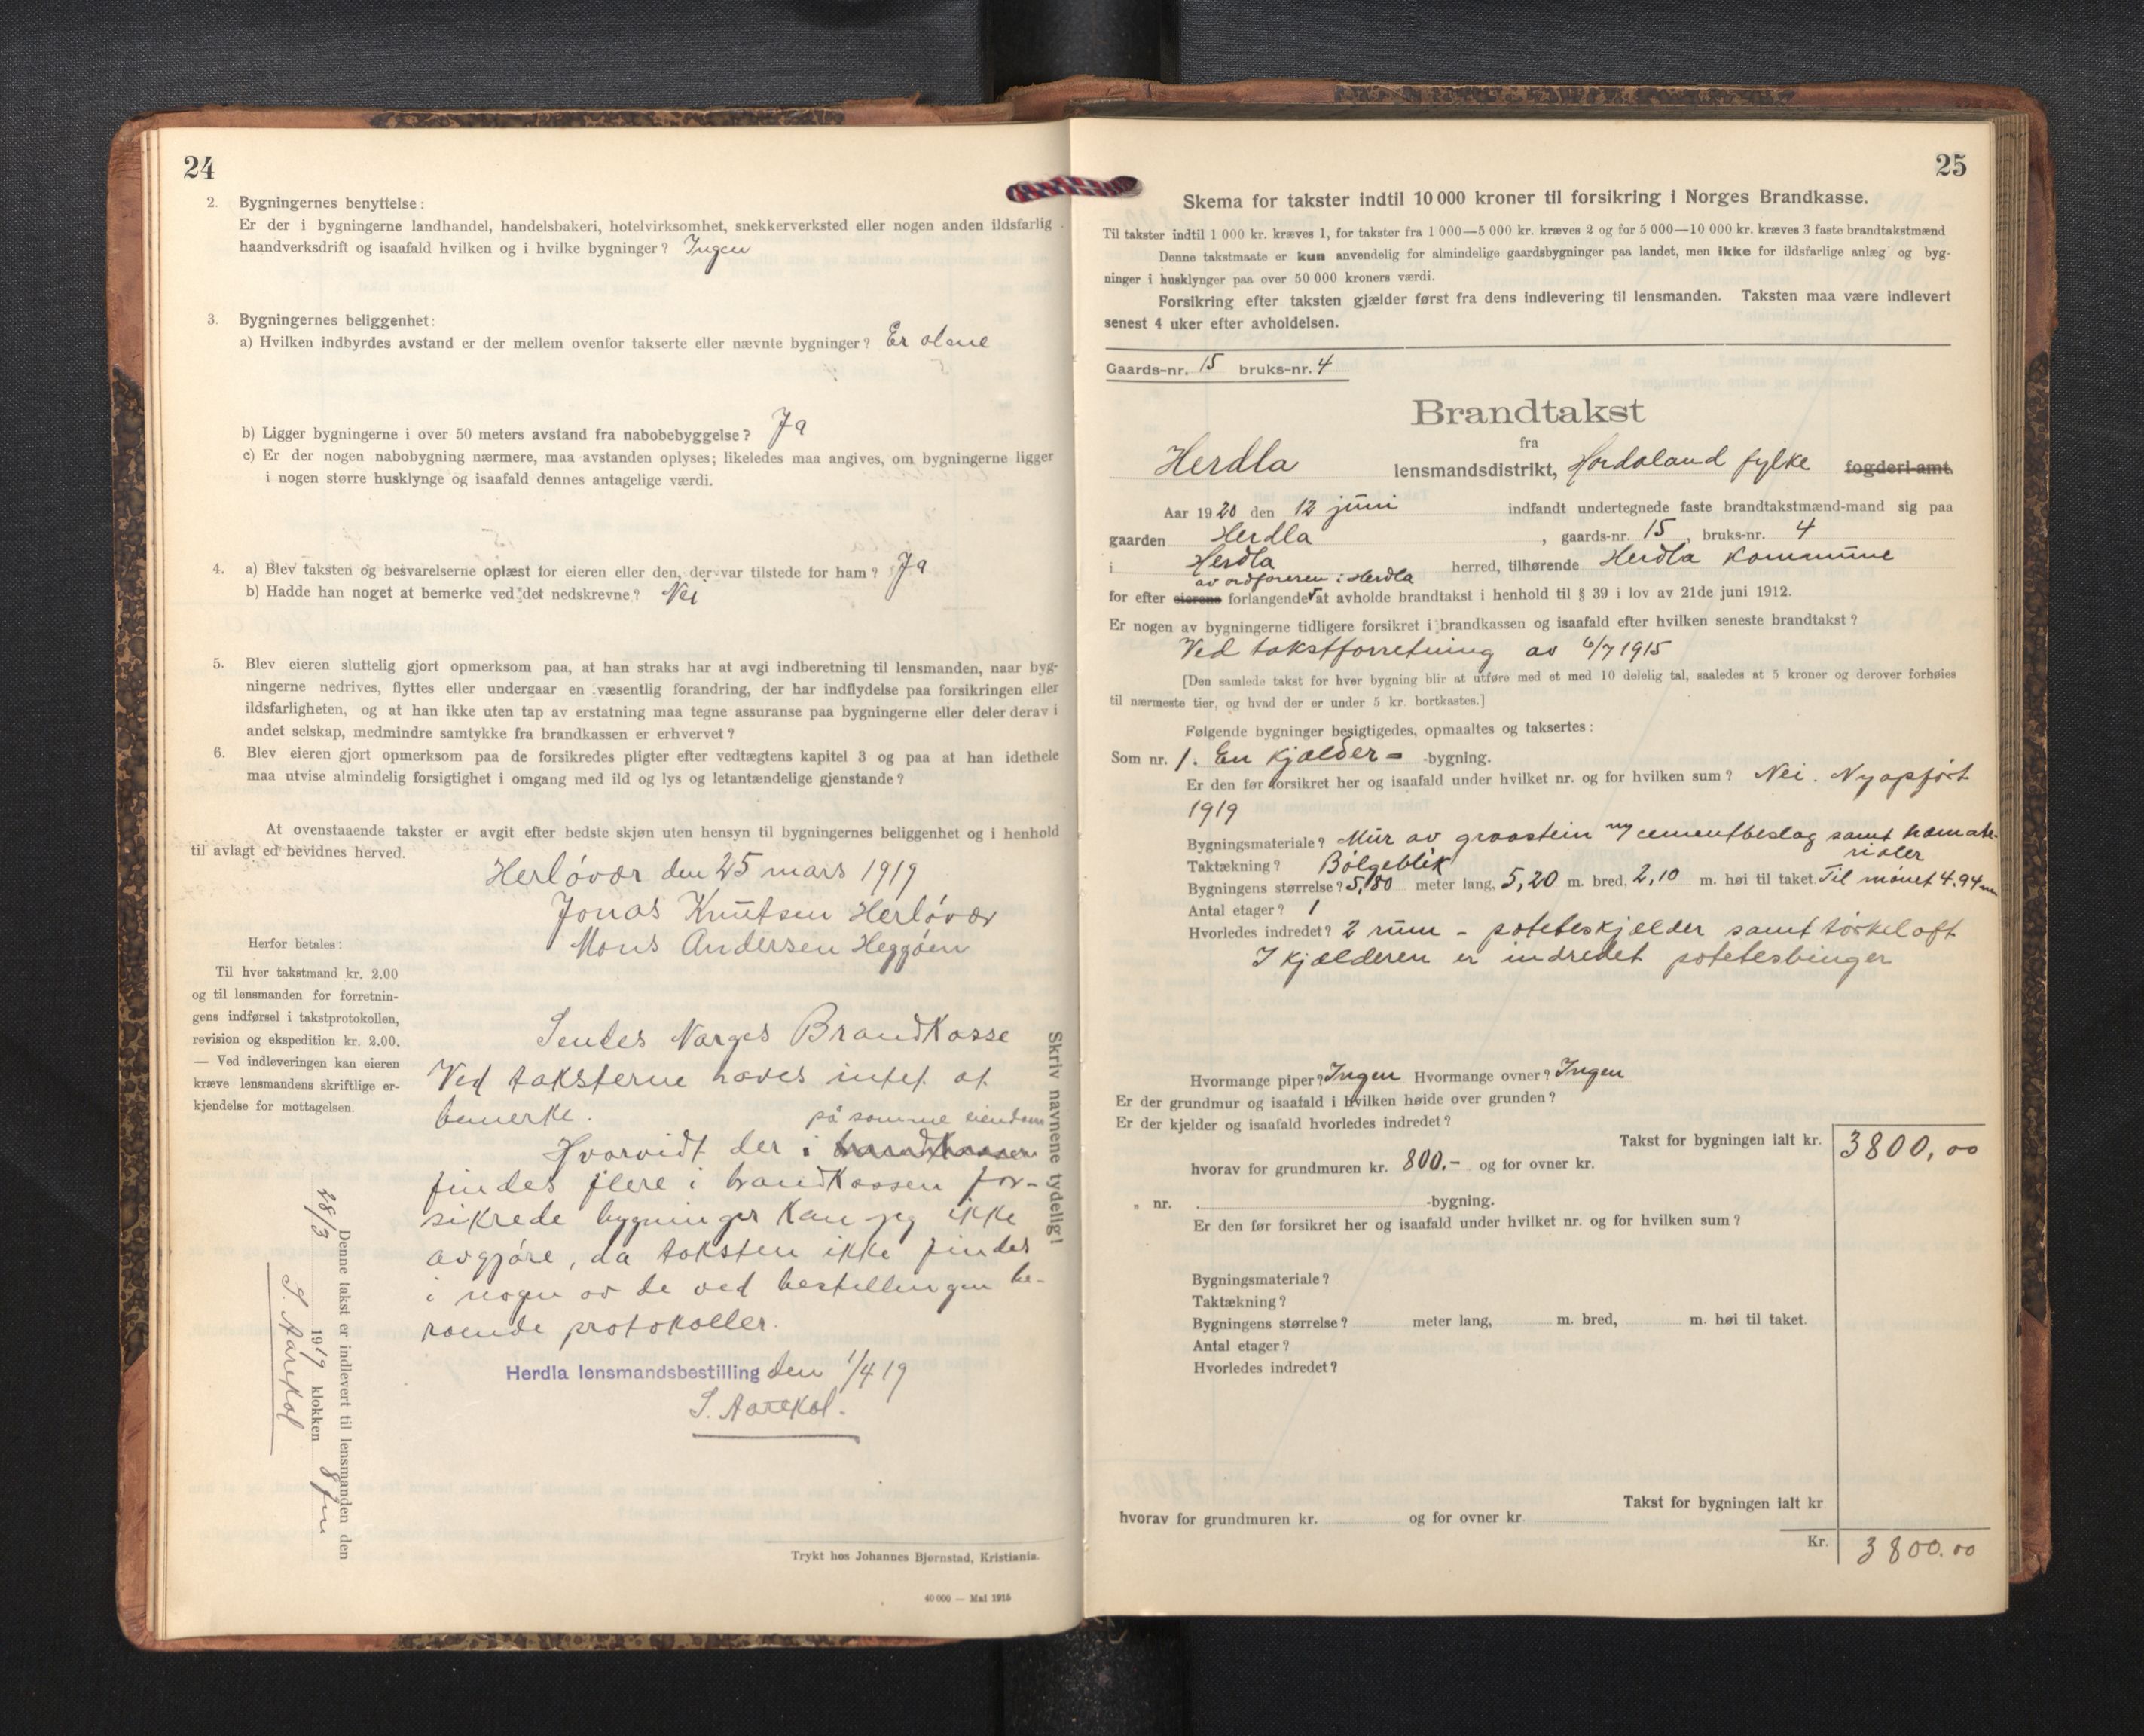 24
2. Bygningernes benyttelse:
Er der i bygningerne landhandel, handelsbakeri, hotelvirksomhet, snekkerverksted eller nogen anden ildsfarlig
haandverksdrift og isaafald hvilken og i hvilke bygninger? Ingen
3. Bygningernes beliggenhet:
a) Hvilken indbyrdes avstand er der mellem ovenfor takserte eller nævnte bygninger? Er alene
b) Ligger bygningerne i over 50 meters avstand fra nabobebyggelse? Ja
c) Er der nogen nabobygning nærmere, maa avstanden oplyses; likeledes maa angives, om bygningerne ligger
i nogen større husklynge og isaafald dennes antagelige værdi.
4. a) Blev taksten og besvarelserne oplæst for eieren eller den, der var tilstede for ham? Ja
b) Hadde han noget at bemerke ved det nedskrevne? Nei
5. Blev eieren sluttelig gjort opmerksom paa, at han straks har at avgi indberetning til lensmanden, naar byg-
ningerne nedrives, flyttes eller undergaar en væsentlig forandring, der har indflydelse paa forsikringen eller
ildsfarligheten, og at han ikke uten tap av erstatning maa tegne assuranse paa bygningerne eller deler derav i
andet selskap, medmindre samtykke fra brandkassen er erhvervet?
6. Blev eieren gjort opmerksom paa de forsikredes pligter efter vedtægtens kapitel 3 og paa at han idethele
maa utvise almindelig forsigtighet i omgang med ild og lys og letantændelige gjenstande?
At ovenstaaende takster er avgit efter bedste skjøn uten hensyn til bygningernes beliggenhet og i henhold
til avlagt ed bevidnes herved.
Herløvær den 25 mars 1919
Jonas Knutsen Herløvær
Mons Andersen Heggøen
Herfor betales:
Til hver takstmand kr. 2.00
og til lensmanden for forretnin-
gens indførsel i takstprotokollen,
revision og ekspedition kr. 2.00.
— Ved indleveringen kan eieren
kræve lensmandens skriftlige er-
kjendelse for mottagelsen.
Sendes Norges Brandkasse
Ved taksterne haves intet at
bemerke.
på samme eiendom
Hvorvidt der i brandkassen
findes flere i brandkassen for-
sikrede bygninger kan jeg ikke
avgjøre, da taksten ikke findes
i nogen av de ved bestillingen be-
roende protokoller.
Herdla lensmandsbestilling den 1/4 19
S. Aarekol.
Skriv navnene tydelig!
Denne takst er indlevert til lensmanden den
28/3 1919 klokken 8 fm
S. Aarekol
Trykt hos Johannes Bjørnstad, Kristiania.
40 000 — Mai 1915
25
Skema for takster indtil 10 000 kroner til forsikring i Norges Brandkasse.
Til takster indtil 1 000 kr. kræves 1, for takster fra 1 000—5 000 kr. kræves 2 og for 5 000—10 000 kr. kræves 3 faste brandtakstmænd
Denne takstmaate er kun anvendelig for almindelige gaardsbygninger paa landet, men ikke for ildsfarlige anlæg og byg-
ninger i husklynger paa over 50 000 kroners værdi.
Forsikring efter taksten gjælder først fra dens indlevering til lensmanden. Taksten maa være indlevert
senest 4 uker efter avholdelsen.
Gaards-nr. 15 bruks-nr. 4
Brandtakst
fra
Herdla lensmandsdistrikt, Hordaland fylke fogderi-amt.
Aar 1920 den 12 juni indfandt undertegnede faste brandtakstmænd-mand sig paa
gaarden Herdla, gaards-nr. 15, bruks-nr. 4
i Herdla herred, tilhørende Herdla Kommune
av ordføreren i Herdla
for efter eierens forlangende at avholde brandtakst i henhold til § 39 i lov av 21de juni 1912.
Er nogen av bygningerne tidligere forsikret i brandkassen og isaafald efter hvilken seneste brandtakst?
Ved takstforretning av 6/7 1915
[Den samlede takst for hver bygning blir at utføre med et med 10 delelig tal, saaledes at 5 kroner og derover forhøies
til nærmeste tier, og hvad der er under 5 kr. bortkastes.]
Følgende bygninger besigtigedes, opmaaltes og taksertes:
Som nr. 1. En kjælder= -bygning.
Er den før forsikret her og isaafald under hvilket nr. og for hvilken sum? Nei. Nyopført
1919
Bygningsmateriale? Mur av graastein m/ cementbeslag samt træmate-
rialer
Taktækning? Bølgeblik
Bygningens størrelse? 5,80 meter lang, 5,20 m. bred, 2,10 m. høi til taket. Til mønet 4.94 m
Antal etager? 1
Hvorledes indredet? 2 rum - poteteskjælder samt tørkeloft
I kjælderen er indredet potetesbinger
Hvormange piper? Ingen Hvormange ovner? Ingen
Er der grundmur og isaafald i hvilken høide over grunden?
Er der kjelder og isaafald hvorledes indredet?
Takst for bygningen ialt kr. 3800,00
hvorav for grundmuren kr. 800.- og for ovner kr.
„ nr. -bygning.
Er den før forsikret her og isaafald under hvilket nr. og for hvilken sum?
Bygningsmateriale?
Taktækning?
Bygningens størrelse? meter lang, m. bred, m. høi til taket.
Antal etager?
Hvorledes indredet?
Takst for bygningen ialt kr
hvorav for grundmuren kr. og for ovner kr.
Kr. 3800.00